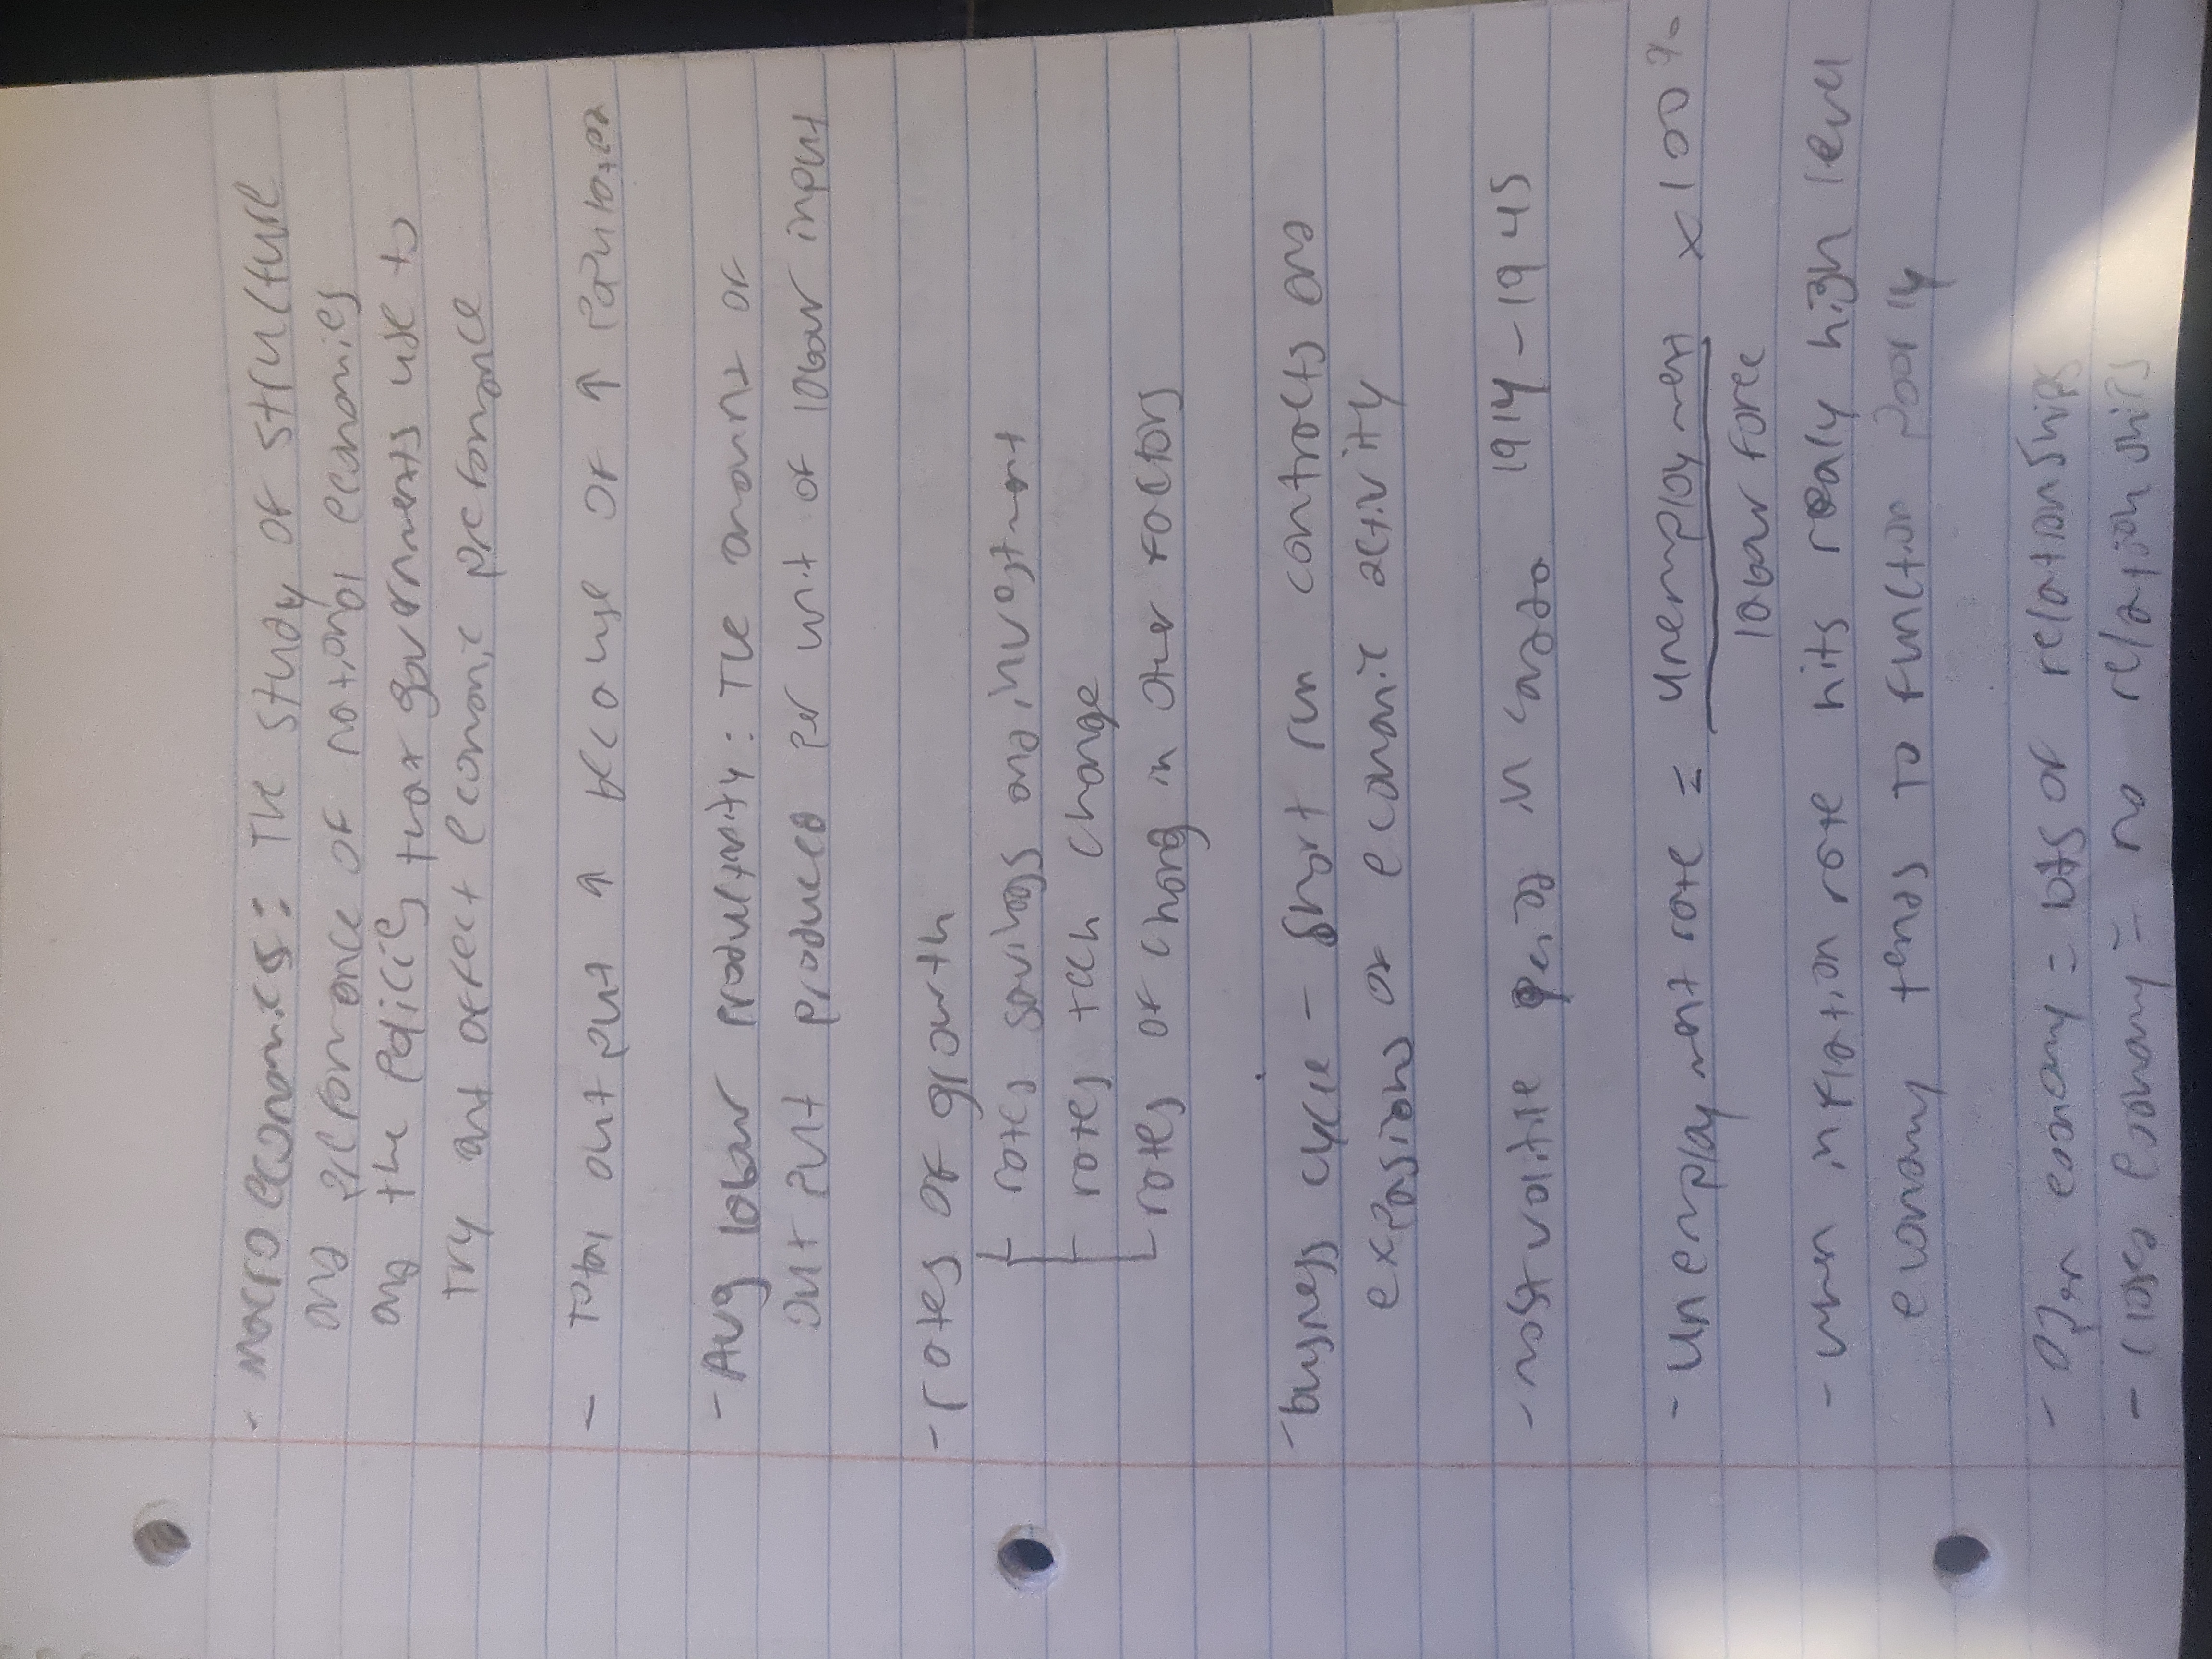 - Macroeconomics: The study of structure
and performance of national economies
and the policies that governments use to
try and affect economic preformance
- Total output ↑ because of ↑ Population
- Avg labour productivity: The amount of
output produced per unit of labour input
- rates of growth
rates savings and investment
rates tech change
rates of chang in other factors
- busness cycle - short run contracts and
expasions of economic activity
- most volitile period in Canada 1914-1945
- unemployment rate = unemployment x 100%
labour force
- when inflation rate hits realy high level
economy tends to function poorly
- open economy = lots of relationships
- closed economy = no relationships